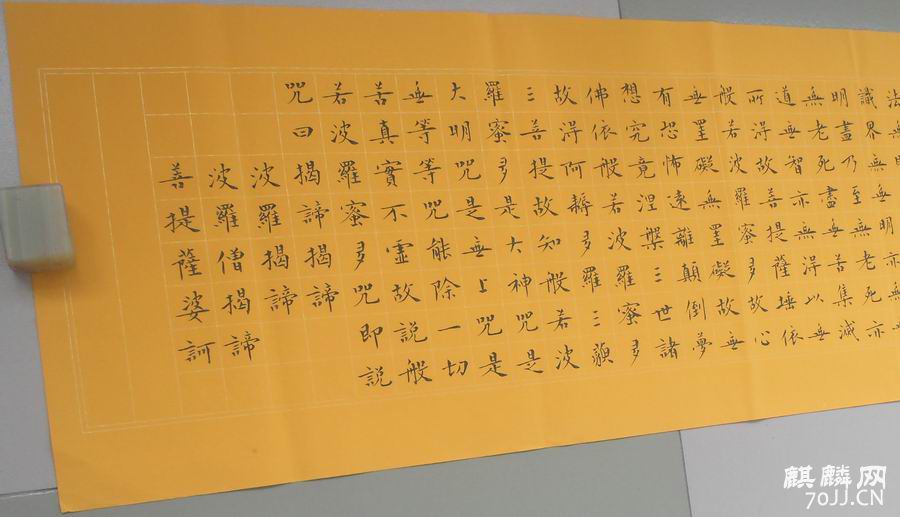 法無
識界無無明亦無無
明盡乃至無老死亦
無老死盡無苦集滅
道無智亦無得以無
所得故菩提薩埵依
般若波羅蜜多故心
無罣礙無罣礙故無
有恐怖遠離顛倒夢
想究竟涅槃三世諸
佛依般若波羅蜜多
故得阿耨多羅三藐
三菩提故知般若波
羅蜜多是大神咒是
大明咒是無上咒是
無等等咒能除一切
苦真實不虛故說般
若波羅蜜多咒即說
咒曰揭諦揭諦
波羅揭諦
波羅僧揭諦
菩提薩婆訶
麒麟网
70JJ.CN